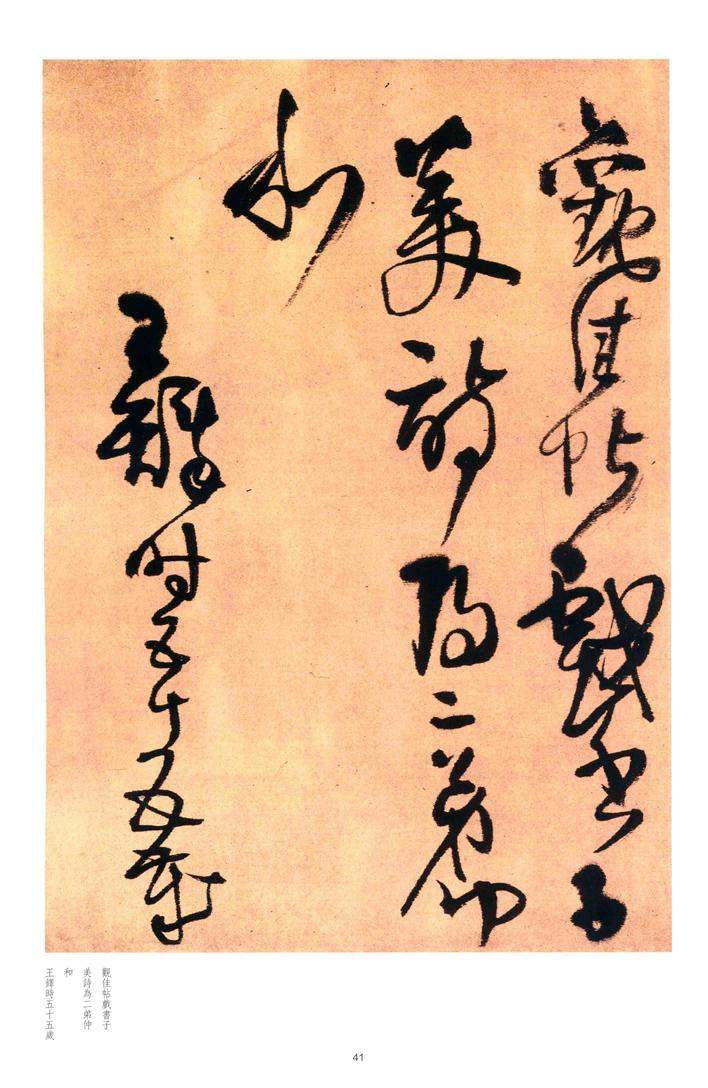 觀佳帖戲書子
美詩為二弟仲
和
王鐸時五十五歲
觀佳帖戲書子
美詩為二弟仲
和
王鐸時五十五歲
41